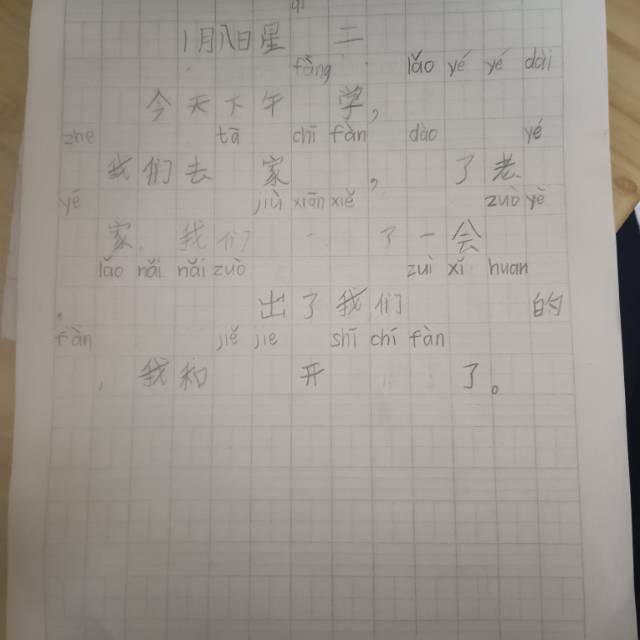 1月八日星 二
fàng lǎo yé yé dài
今天下午 学，
zhe tā chī fàn dào yé
我们去 家 ，了老
yé jiù xiān xiě zuò yè
家。我们 了一会
lǎo nǎi nǎi zuò zuì xǐ huan
出了我们 的
fàn jiě jie shǐ chī fàn
，我和 开 了。